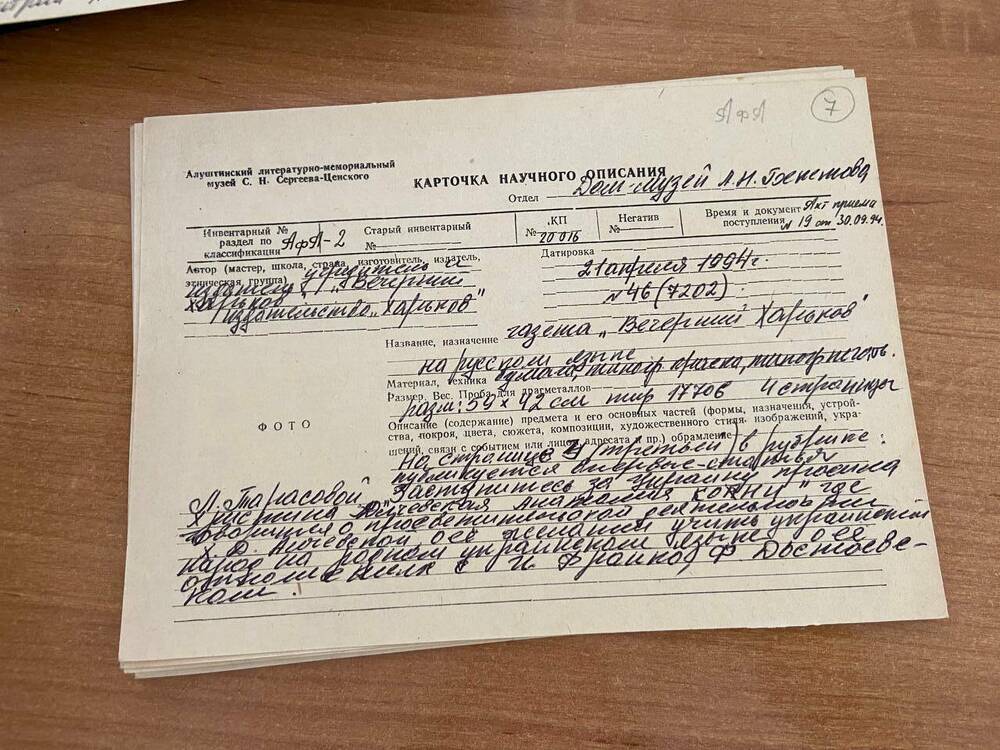 АфЛ 7
Алуштинский литературно-мемориальный
музей С. Н. Сергеева-Ценского
КАРТОЧКА НАУЧНОГО ОПИСАНИЯ
Отдел Дом-музей А.Н. Бекетова
Инвентарный №
раздел по
классификации АфЛ-2
Старый инвентарный
№
КП
№ 20 016
Негатив
№
Время и документ Акт приема
поступления № 19 от 30.09.94.
Автор (мастер, школа, страна, изготовитель, издатель,
этническая группа) учредитель и
издатель „Вечерний
Харьков"
издательство „Харьков"
Датировка
21 апреля 1994 г.
№ 46 (7202).
Название, назначение газета „Вечерний Харьков"
на русском языке
Материал, техника бумага, типогр. краска, типогр. печать.
Размер. Вес. Проба для драгметаллов
разм: 59 х 42 см тир 17706 4 страницы
ФОТО
Описание (содержание) предмета и его основных частей (формы, назначения, устрой-
ства, покроя, цвета, сюжета, композиции, художественного стиля, изображений, укра-
шений, связи с событием или лицом, адресата и пр.) обрамление
На странице 3 (третьей) в рубрике:
публикуется впервые - статья
Л. Тарасовой „Заступитесь за Украину просила
Христина Алчевская Анатолия Кони" где
говорится о просветительской деятельности
Х.Д. Алчевской, о её желании учить украинский
народ на родном украинском языке, о её
с И. Франко, Ф. Достоевс-
ком.